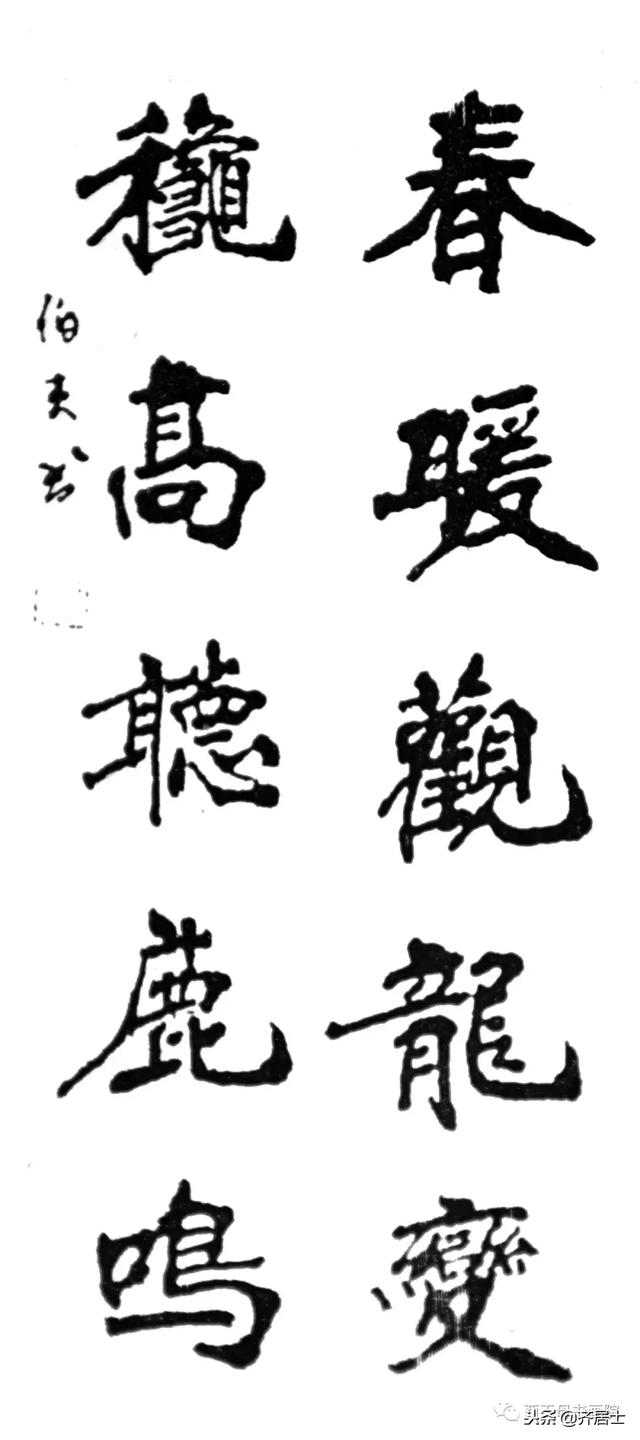 春暖觀龍變
龝髙聽鹿鳴
伯英书
头条 @齐居士